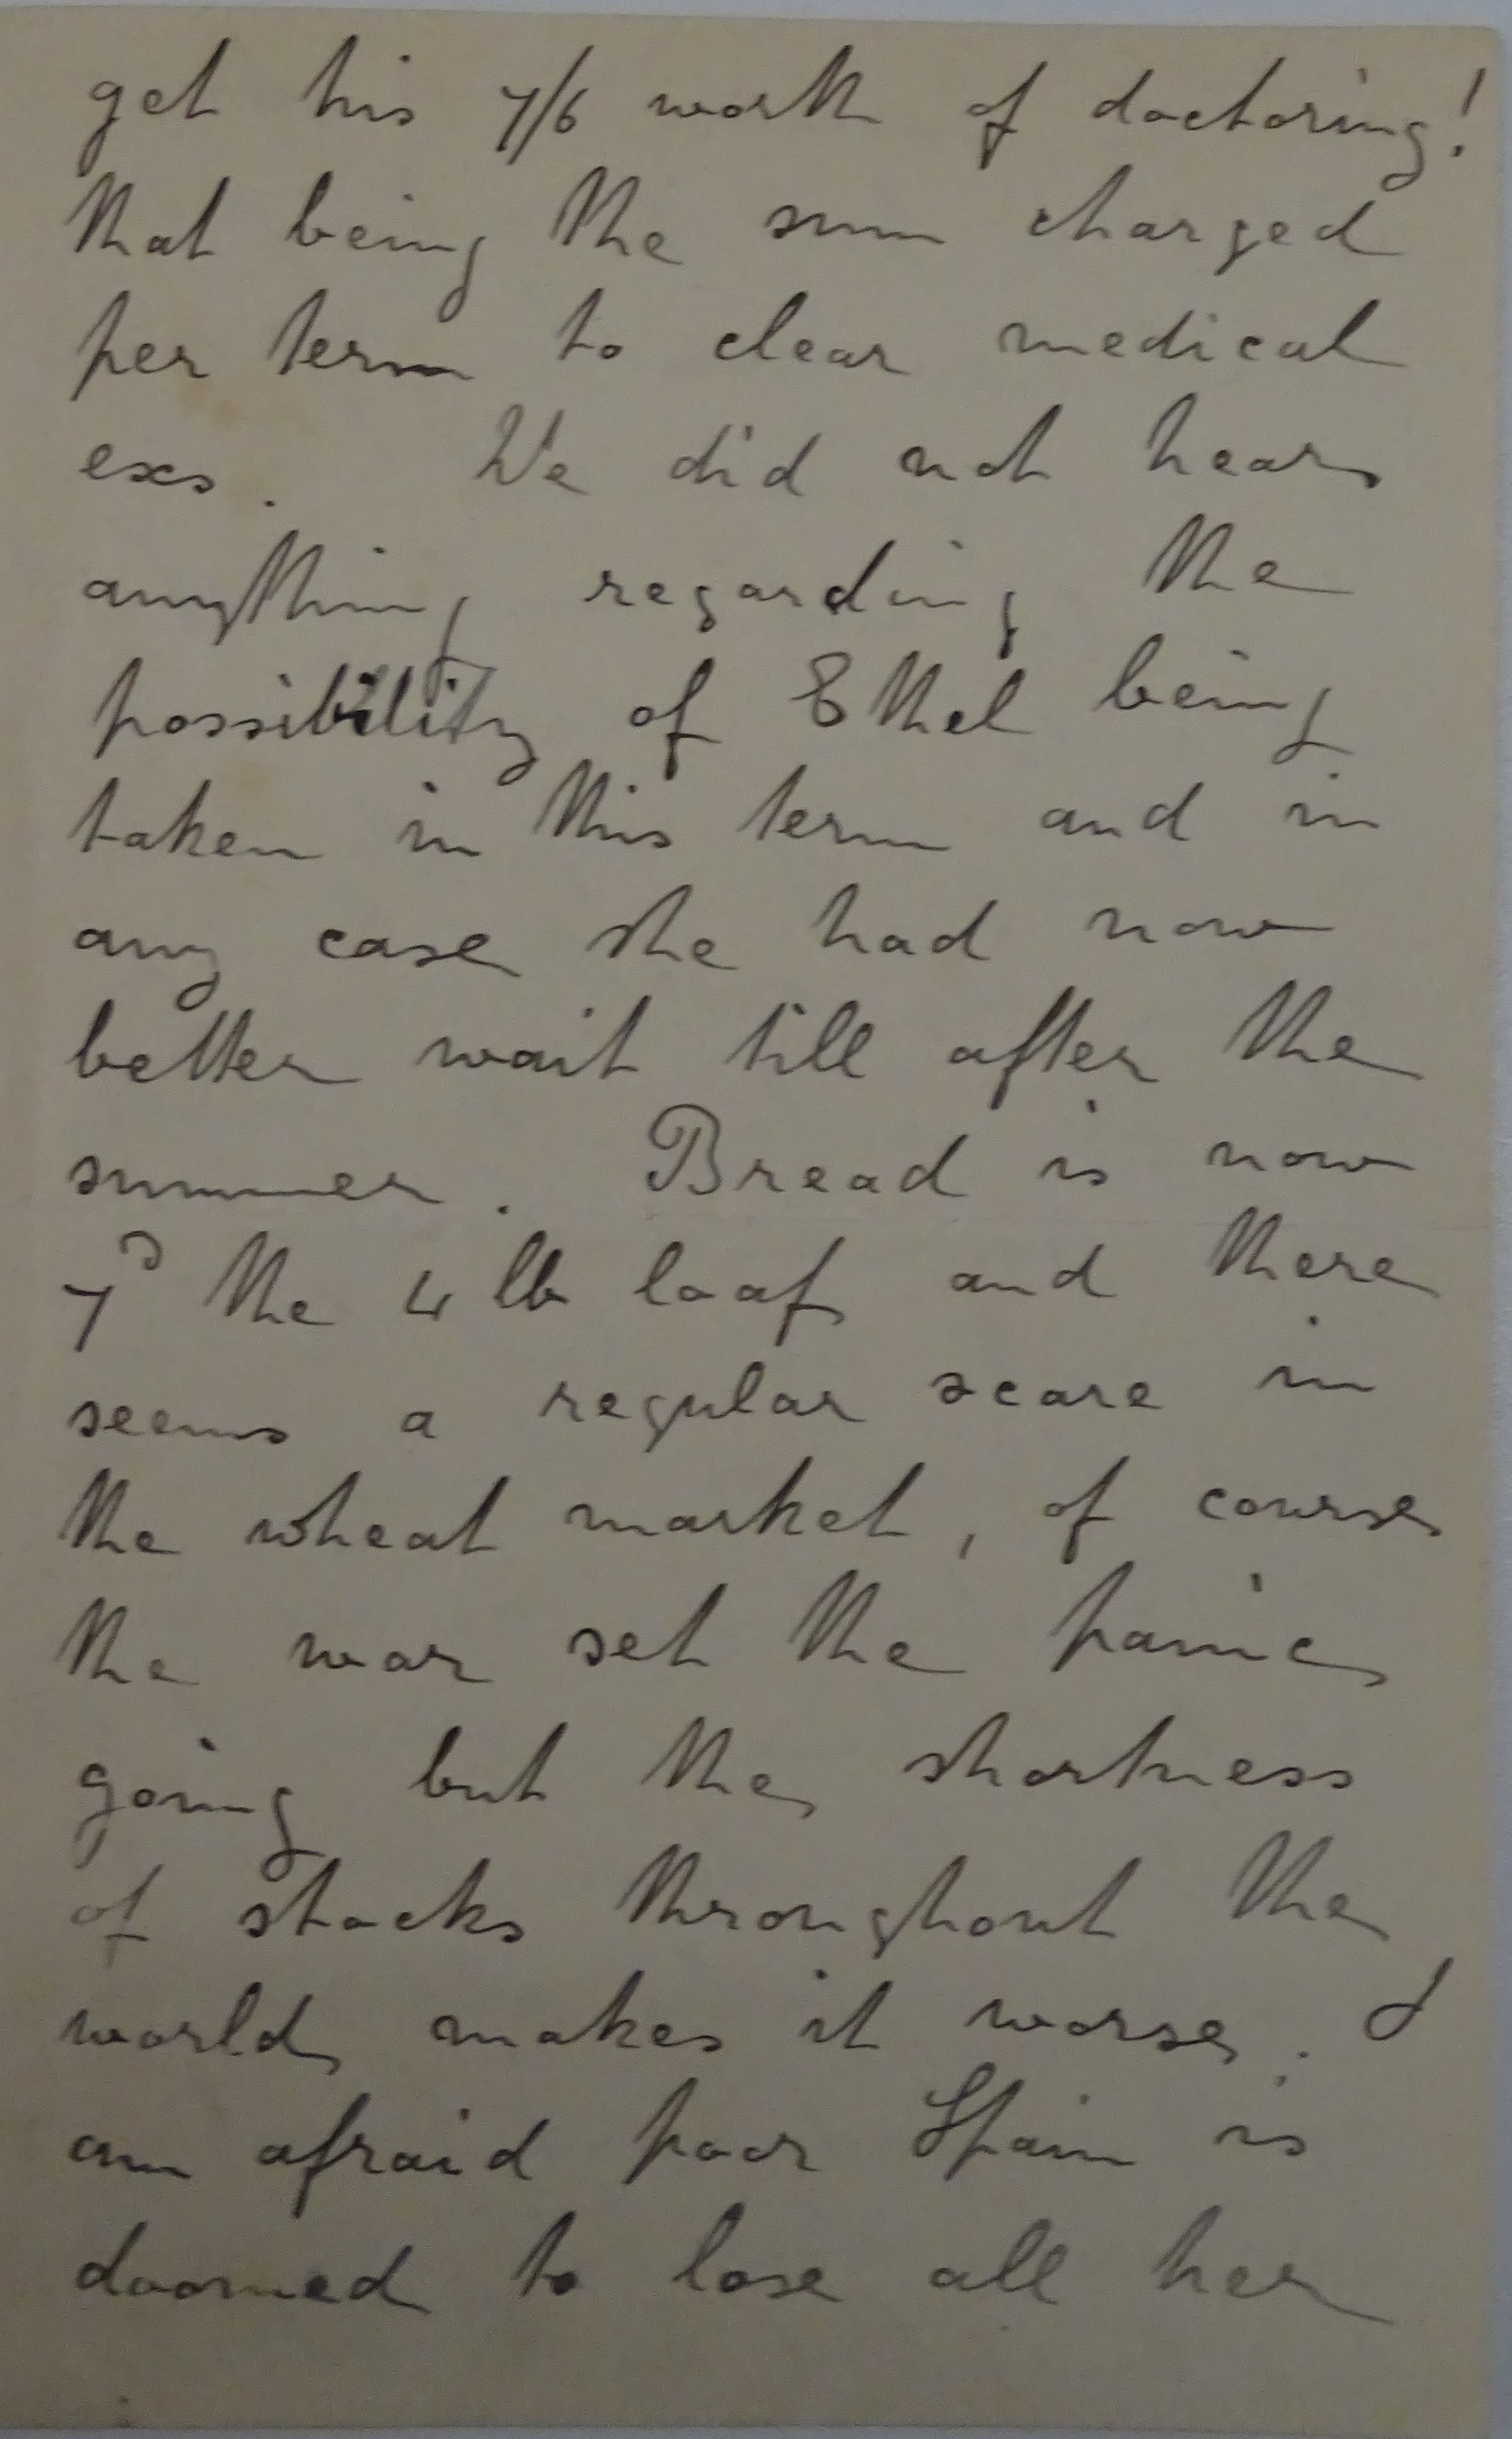 get his 7/6 worth of doctoring!
that being the sum charged
per term to clear medical
exs. We did not hear
anything regarding the
possibility of Ethel being
taken in this term and in
any case she had now
better wait till after the
summer. Bread is now
7D the 4 lb loaf and there
seems a regular scare in
the wheat market, of course
the war set the panic
going but the shortness
of stocks throughout the
world makes it worse. I
am afraid poor Spain is
doomed to lose all her